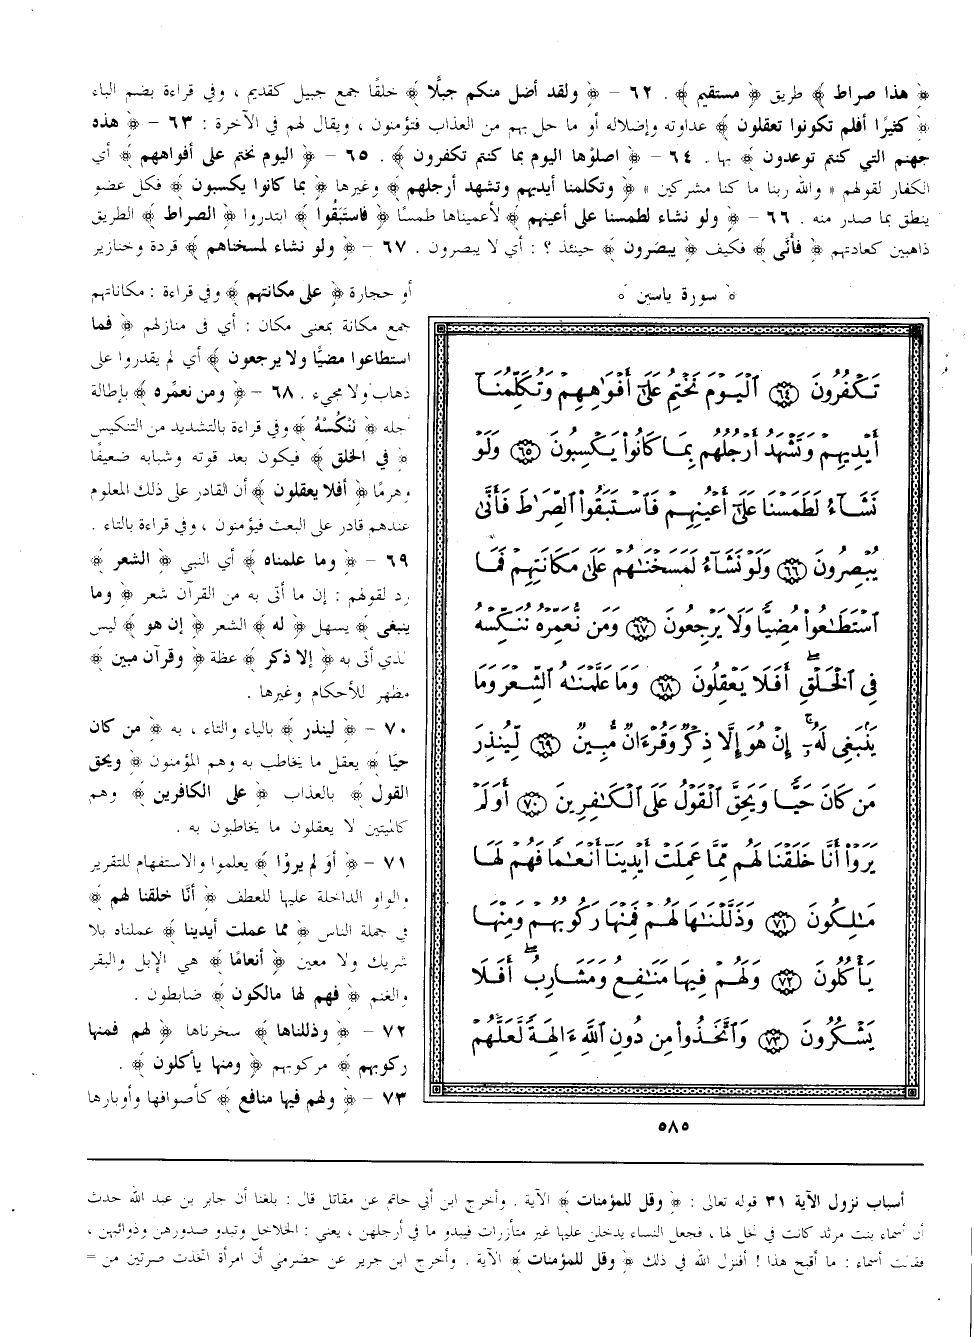 ﴿ هذا صراط ﴾ طريق ﴿ مستقيم ﴾ . ٦٢ - ﴿ ولقد أضل منكم جبلًّا ﴾ خلقًا جمع جبيل كقديم ، وفي قراءة بضم الباء
﴿ كثيرًا أفلم تكونوا تعقلون ﴾ عداوته وإضلاله أو ما حل بهم من العذاب فتؤمنون ، ويقال لهم في الآخرة : ٦٣ - ﴿ هذه
جهنم التي كنتم توعدون ﴾ بها . ٦٤ - ﴿ اصلوْها اليوم بما كنتم تكفرون ﴾ . ٦٥ - ﴿ اليوم نختم على أفواههم ﴾ أي
الكفار لقولهم « والله ربنا ما كنا مشركين » ﴿ وتكلمنا أيديهم وتشهد أرجلهم ﴾ وغيرها ﴿ بما كانوا يكسبون ﴾ فكل عضو
ينطق بما صدر منه . ٦٦ - ﴿ ولو نشاء لطمسنا على أعينهم ﴾ لأعميناها طمسًا ﴿ فاستَبَقُوا ﴾ ابتدروا ﴿ الصراط ﴾ الطريق
ذاهبين كعادتهم ﴿ فأنَّى ﴾ فكيف ﴿ يبصرون ﴾ حينئذ ؟ : أي لا يبصرون . ٦٧ - ﴿ ولو نشاء لمسخناهم ﴾ قردة وخنازير
أو حجارة ﴿ على مكانتهم ﴾ وفي قراءة : مكاناتهم
جمع مكانة بمعنى مكان : أي في منازلهم ﴿ فما
استطاعوا مضيًّا ولا يرجعون ﴾ أي لم يقدروا على
ذهاب ولا مجيء . ٦٨ - ﴿ ومن نعمِّره ﴾ بإطالة
أجله ﴿ نَنْكُسْهُ ﴾ وفي قراءة بالتشديد من التنكيس
﴿ في الخلق ﴾ فيكون بعد قوته وشبابه ضعيفًا
وهرمًا ﴿ أفلا يعقلون ﴾ أن القادر على ذلك المعلوم
عندهم قادر على البعث فيؤمنون ، وفي قراءة بالتاء .
٦٩ - ﴿ وما علمناه ﴾ أي النبي ﴿ الشعر ﴾
رد لقولهم : إن ما أتى به من القرآن شعر ﴿ وما
ينبغي ﴾ يسهل ﴿ له ﴾ الشعر ﴿ إن هو ﴾ ليس
لذي أتى به ﴿ إلا ذكر ﴾ عظة ﴿ وقرآن مبين ﴾
مظهر للأحكام وغيرها .
٧٠ - ﴿ لينذر ﴾ بالياء والتاء ، به ﴿ من كان
حيًّا ﴾ يعقل ما يخاطب به وهم المؤمنون ﴿ ويحق
القول ﴾ بالعذاب ﴿ على الكافرين ﴾ وهم
كالميتين لا يعقلون ما يخاطبون به .
٧١ - ﴿ أو لم يروْا ﴾ يعلموا والاستفهام للتقرير
والواو الداخلة عليها للعطف ﴿ أنَّا خلقنا لهم ﴾
في جملة الناس ﴿ مما عملت أيدينا ﴾ عملناه بلا
شريك ولا معين ﴿ أنعامًا ﴾ هي الإبل والبقر
والغنم ﴿ فهم لها مالكون ﴾ ضابطون .
٧٢ - ﴿ وذللناها ﴾ سخرناها ﴿ لهم فمنها
ركوبهم ﴾ مركوبهم ﴿ ومنها يأكلون ﴾ .
٧٣ - ﴿ ولهم فيها منافع ﴾ كأصوافها وأوبارها
﴿ سورة ياسين ﴾
تَكْفُرُونَ ﴿٦٤﴾ ٱلْيَوْمَ نَخْتِمُ عَلَىٰٓ أَفْوَٰهِهِمْ وَتُكَلِّمُنَآ
أَيْدِيهِمْ وَتَشْهَدُ أَرْجُلُهُم بِمَا كَانُوا۟ يَكْسِبُونَ ﴿٦٥﴾ وَلَوْ
نَشَآءُ لَطَمَسْنَا عَلَىٰٓ أَعْيُنِهِمْ فَٱسْتَبَقُوا۟ ٱلصِّرَٰطَ فَأَنَّىٰ
يُبْصِرُونَ ﴿٦٦﴾ وَلَوْ نَشَآءُ لَمَسَخْنَٰهُمْ عَلَىٰ مَكَانَتِهِمْ فَمَا
ٱسْتَطَٰعُوا۟ مُضِيًّا وَلَا يَرْجِعُونَ ﴿٦٧﴾ وَمَن نُّعَمِّرْهُ نُنَكِّسْهُ
فِى ٱلْخَلْقِ ۖ أَفَلَا يَعْقِلُونَ ﴿٦٨﴾ وَمَا عَلَّمْنَٰهُ ٱلشِّعْرَ وَمَا
يَنۢبَغِى لَهُۥٓ ۚ إِنْ هُوَ إِلَّا ذِكْرٌ وَقُرْءَانٌ مُّبِينٌ ﴿٦٩﴾ لِّيُنذِرَ
مَن كَانَ حَيًّا وَيَحِقَّ ٱلْقَوْلُ عَلَى ٱلْكَٰفِرِينَ ﴿٧٠﴾ أَوَلَمْ
يَرَوْا۟ أَنَّا خَلَقْنَا لَهُم مِّمَّا عَمِلَتْ أَيْدِينَآ أَنْعَٰمًا فَهُمْ لَهَا
مَٰلِكُونَ ﴿٧١﴾ وَذَلَّلْنَٰهَا لَهُمْ فَمِنْهَا رَكُوبُهُمْ وَمِنْهَا
يَأْكُلُونَ ﴿٧٢﴾ وَلَهُمْ فِيهَا مَنَٰفِعُ وَمَشَارِبُ ۖ أَفَلَا
يَشْكُرُونَ ﴿٧٣﴾ وَٱتَّخَذُوا۟ مِن دُونِ ٱللَّهِ ءَالِهَةً لَّعَلَّهُمْ
٥٨٥
أسباب نزول الآية ٣١ قوله تعالى : ﴿ وقل للمؤمنات ﴾ الآية . وأخرج ابن أبي حاتم عن مقاتل قال : بلغنا أن جابر بن عبد الله حدث
أن أسماء بنت مرثد كانت في نخل لها ، فجعل النساء يدخلن عليها غير متأزرات فيبدو ما في أرجلهن ، يعني : الخلاخل وتبدو صدورهن وذوائبهن ،
فقالت أسماء : ما أقبح هذا ! فأنزل الله في ذلك ﴿ وقل للمؤمنات ﴾ الآية . وأخرج ابن جرير عن حضرمي أن امرأة اتخذت صرتين من =